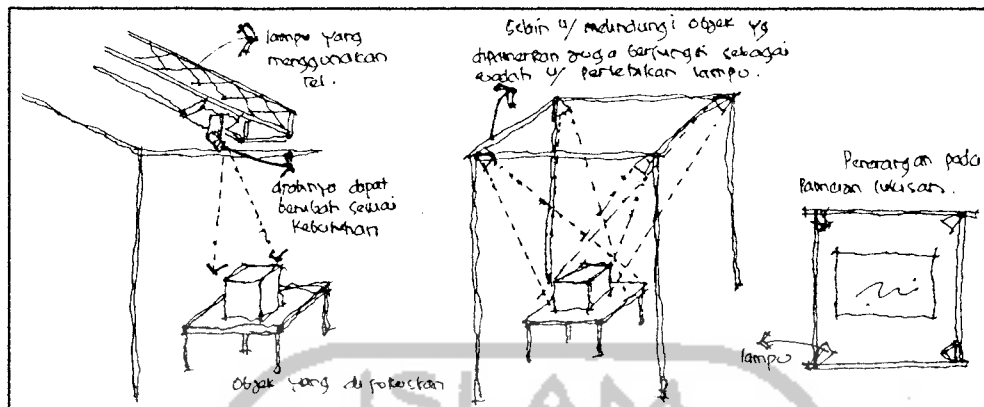 lampu yang
menggunakan
rel.
arahnya dapat
berubah sesuai
kebutuhan
Objek yang difokuskan
Selain u/ melindungi objek yg
dipamerkan juga berfungsi sebagai
wadah u/ perletakan lampu.
Penerangan pada
Pameran lukisan.
lampu
ISLAM